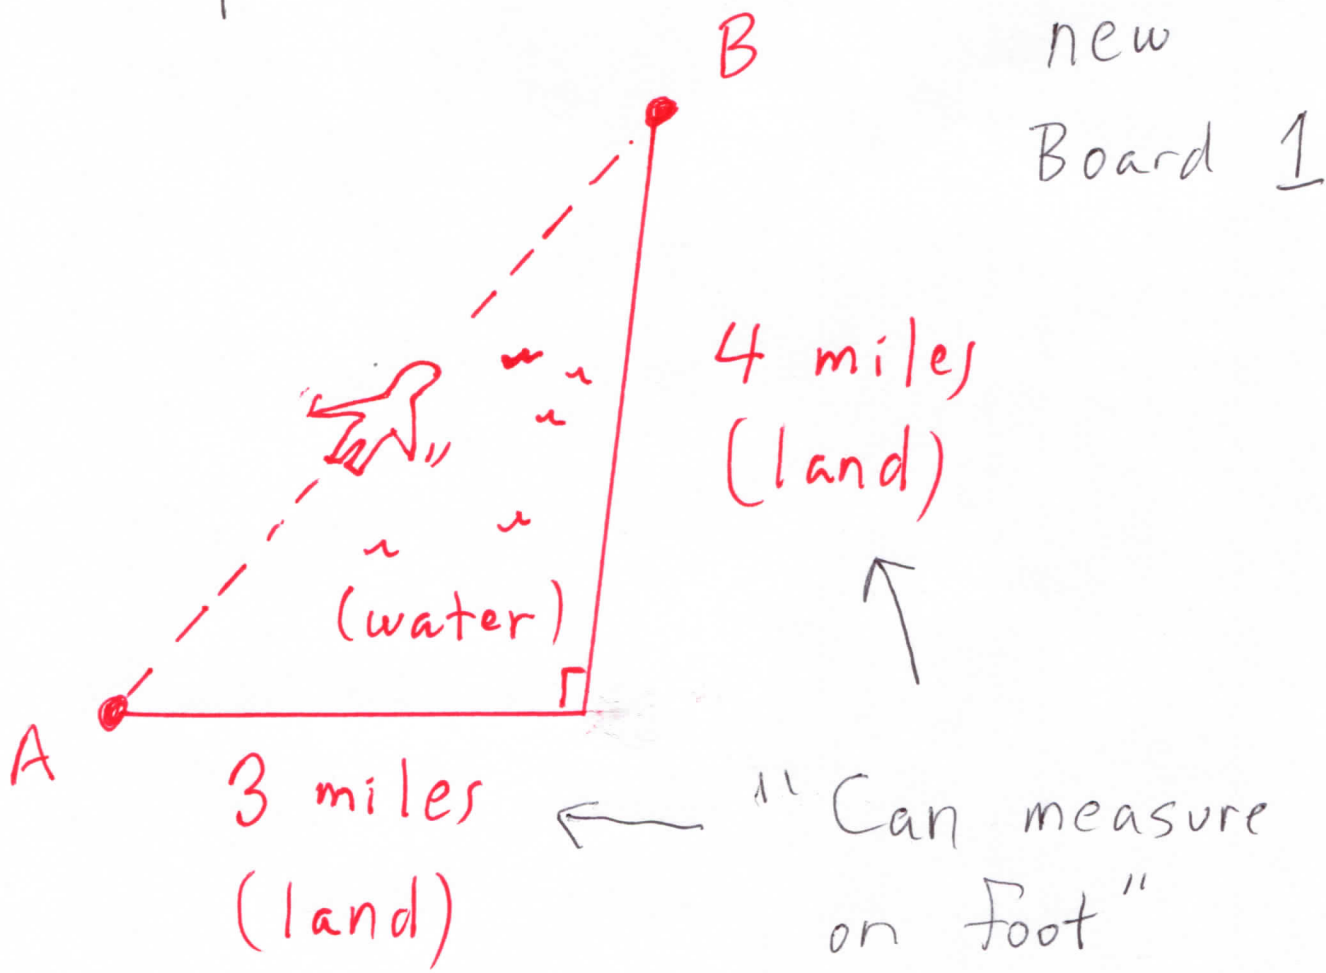 B
new
Board 1
4 miles
(land)
(water)
A
3 miles
(land)
"Can measure
on foot"